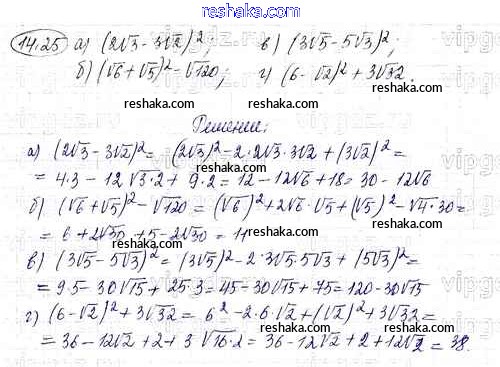 www.reshaka.com
14.25 а) (2√3 - 3√2)²; в) (3√5 - 5√3)²;
б) (√6 + √5)² - √120; г) (6 - √2)² + 3√32.
reshaka.com reshaka.com
Решение:
а) (2√3 - 3√2)² = (2√3)² - 2·2√3·3√2 + (3√2)² =
= 4·3 - 12√3·2 + 9·2 = 12 - 12√6 + 18 = 30 - 12√6
reshaka.com reshaka.com
б) (√6 + √5)² - √120 = (√6)² + 2√6·√5 + (√5)² - √4·30 =
= 6 + 2√30 + 5 - 2√30 = 11
reshaka.com reshaka.com
в) (3√5 - 5√3)² = (3√5)² - 2·3√5·5√3 + (5√3)² =
= 9·5 - 30√15 + 25·3 = 45 - 30√15 + 75 = 120 - 30√15
г) (6 - √2)² + 3√32 = 6² - 2·6·√2 + (√2)² + 3√32 =
reshaka.com reshaka.com
= 36 - 12√2 + 2 + 3√16·2 = 36 - 12√2 + 2 + 12√2 = 38.